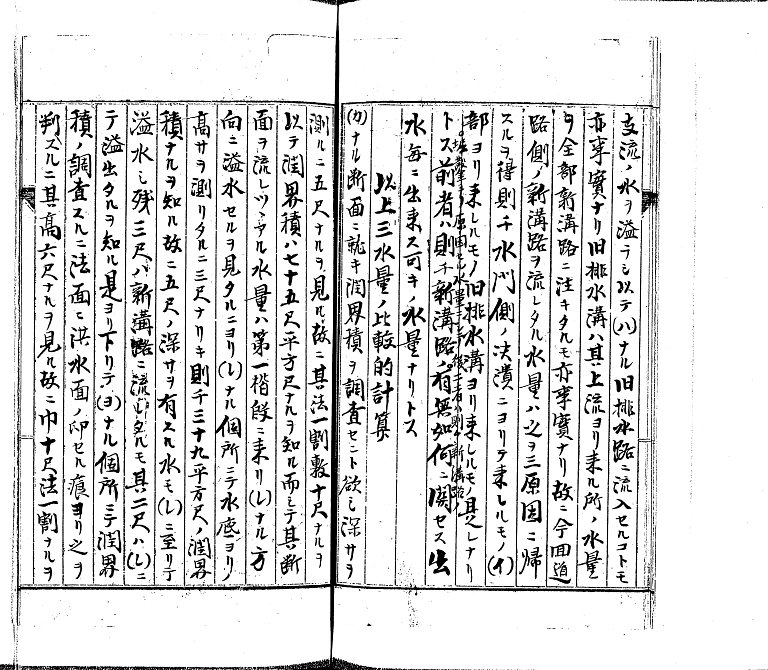 支流ノ水ヲ溢テシ以テ(ハ)ナル旧排水路ニ流入セルコトモ
亦事實ナリ旧排水溝ハ其上流ヨリ来ル所ノ水量
ヲ全部新溝路ニ注キタルモ亦事實ナリ故ニ今回道
路側ノ新溝路ヲ流レタル水量ハ之ヲ三原因ニ帰
スルヲ得則チ水門側ノ决潰ニヨリテ来レルモノ(イ)
部ヨリ来レルモノ旧排水溝ヨリ来レルモノ是レナリ
トス前者ハ則チ新溝路ノ有無如何ニ関セス出
水毎ニ出来ス可キノ水量ナリトス
以上三水量ノ比較的計算
(カ)ナル断面ニ就キ潤界積ヲ調査セント欲シ深サヲ
測ルニ五尺ナルヲ見ル故ニ其法一割敷十尺ナルヲ
以テ潤界積ハ七十五尺平方尺ナルヲ知ル而シテ其断
面ヲ流レツヽアル水量ハ第一楷段ニ来リ(レ)ナル方
向ニ溢水セルヲ見タルニヨリ(レ)ナル個所ニテ水底ヨリノ
高サヲ測リタルニ三尺ナリキ則チ三十九平方尺ノ潤界
積ナルヲ知ル故ニ五尺ノ深サヲ有スル水モ(レ)ニ至リテ
溢水シ残三尺ハ新溝路ニ流レタルモ其二尺ハ(レ)ニ
テ溢出タルヲ知ル是ヨリ下リテ(ヨ)ナル個所ニテ潤界
積ノ調査スルニ法面ニ洪水面ノ印セル痕ヨリ之ヲ
判スルニ其高六尺ナルヲ見ル故ニ巾十尺法一割ナルヲ